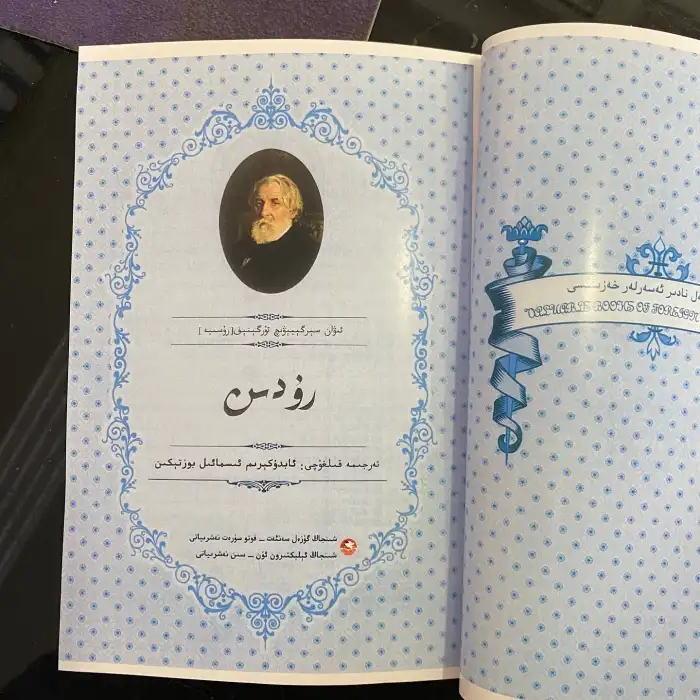 ئىۋان سېرگېيېۋىچ تۇرگېنېف[رۇسىيە]
رۇدىن
تەرجىمە قىلغۇچى: ئابدۇكېرىم ئىسمائىل بوزتېكىن
شىنجاڭ گۈزەل سەنئەت – فوتو سۈرەت نەشرىياتى
شىنجاڭ ئېلېكترون ئۈن – سىن نەشرىياتى
نادىر ئەسەرلەر خەزىنىسى
BOOKS OF FOREIGN